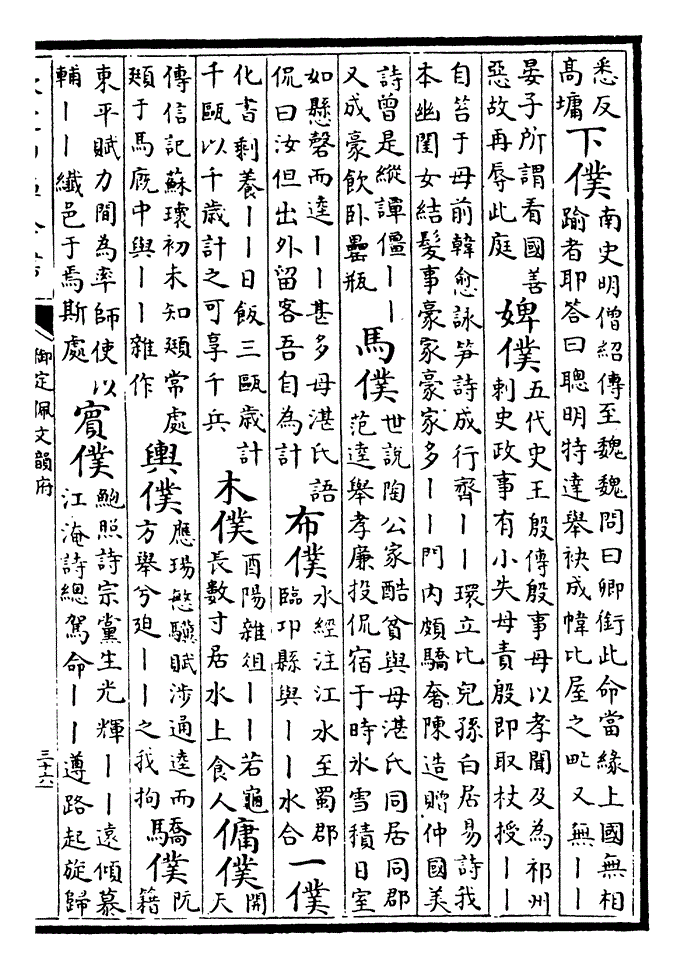 悉反高墉下僕南史明僧紹傳至魏魏問曰卿銜此命當緣上國無相踰者耶答曰聰明特達舉袂成帷比屋之甿又無丨丨
晏子所謂看國善惡故再辱此庭婢僕五代史王殷傳殷事母以孝聞及為祁州刺史政事有小失母責殷即取杖授丨丨
自笞于母前韓愈詠笋詩成行齊丨丨環立比兒孫白居易詩我本幽閨女結髮事豪家豪家多丨丨門内頗驕奢陳造贈仲國美
詩曾是縱譚僵丨丨又成豪飲卧罍瓶馬僕世說陶公家酷貧與母湛氏同居同郡范逵舉孝廉投侃宿于時氷雪積日室
如懸磬而逵丨丨甚多母湛氏語侃曰汝但出外留客吾自為計布僕水經注江水至蜀郡臨邛縣與丨丨水合一僕
化書剩養丨丨日飯三甌歲計千甌以千歲計之可享千兵木僕酉陽雜俎丨丨若龜長數寸居水上食人傭僕開天
傳信記蘇瓌初未知頲常處頲于馬廐中與丨丨雜作輿僕應瑒慜驥賦涉通逵而方舉兮廹丨丨之我拘驕僕阮籍
東平賦力間為率師使以輔丨丨纎邑于焉斯處賓僕鮑照詩宗黨生光輝丨丨遠傾慕江淹詩總駕命丨丨遵路起旋歸
御定佩文韻府
三十六